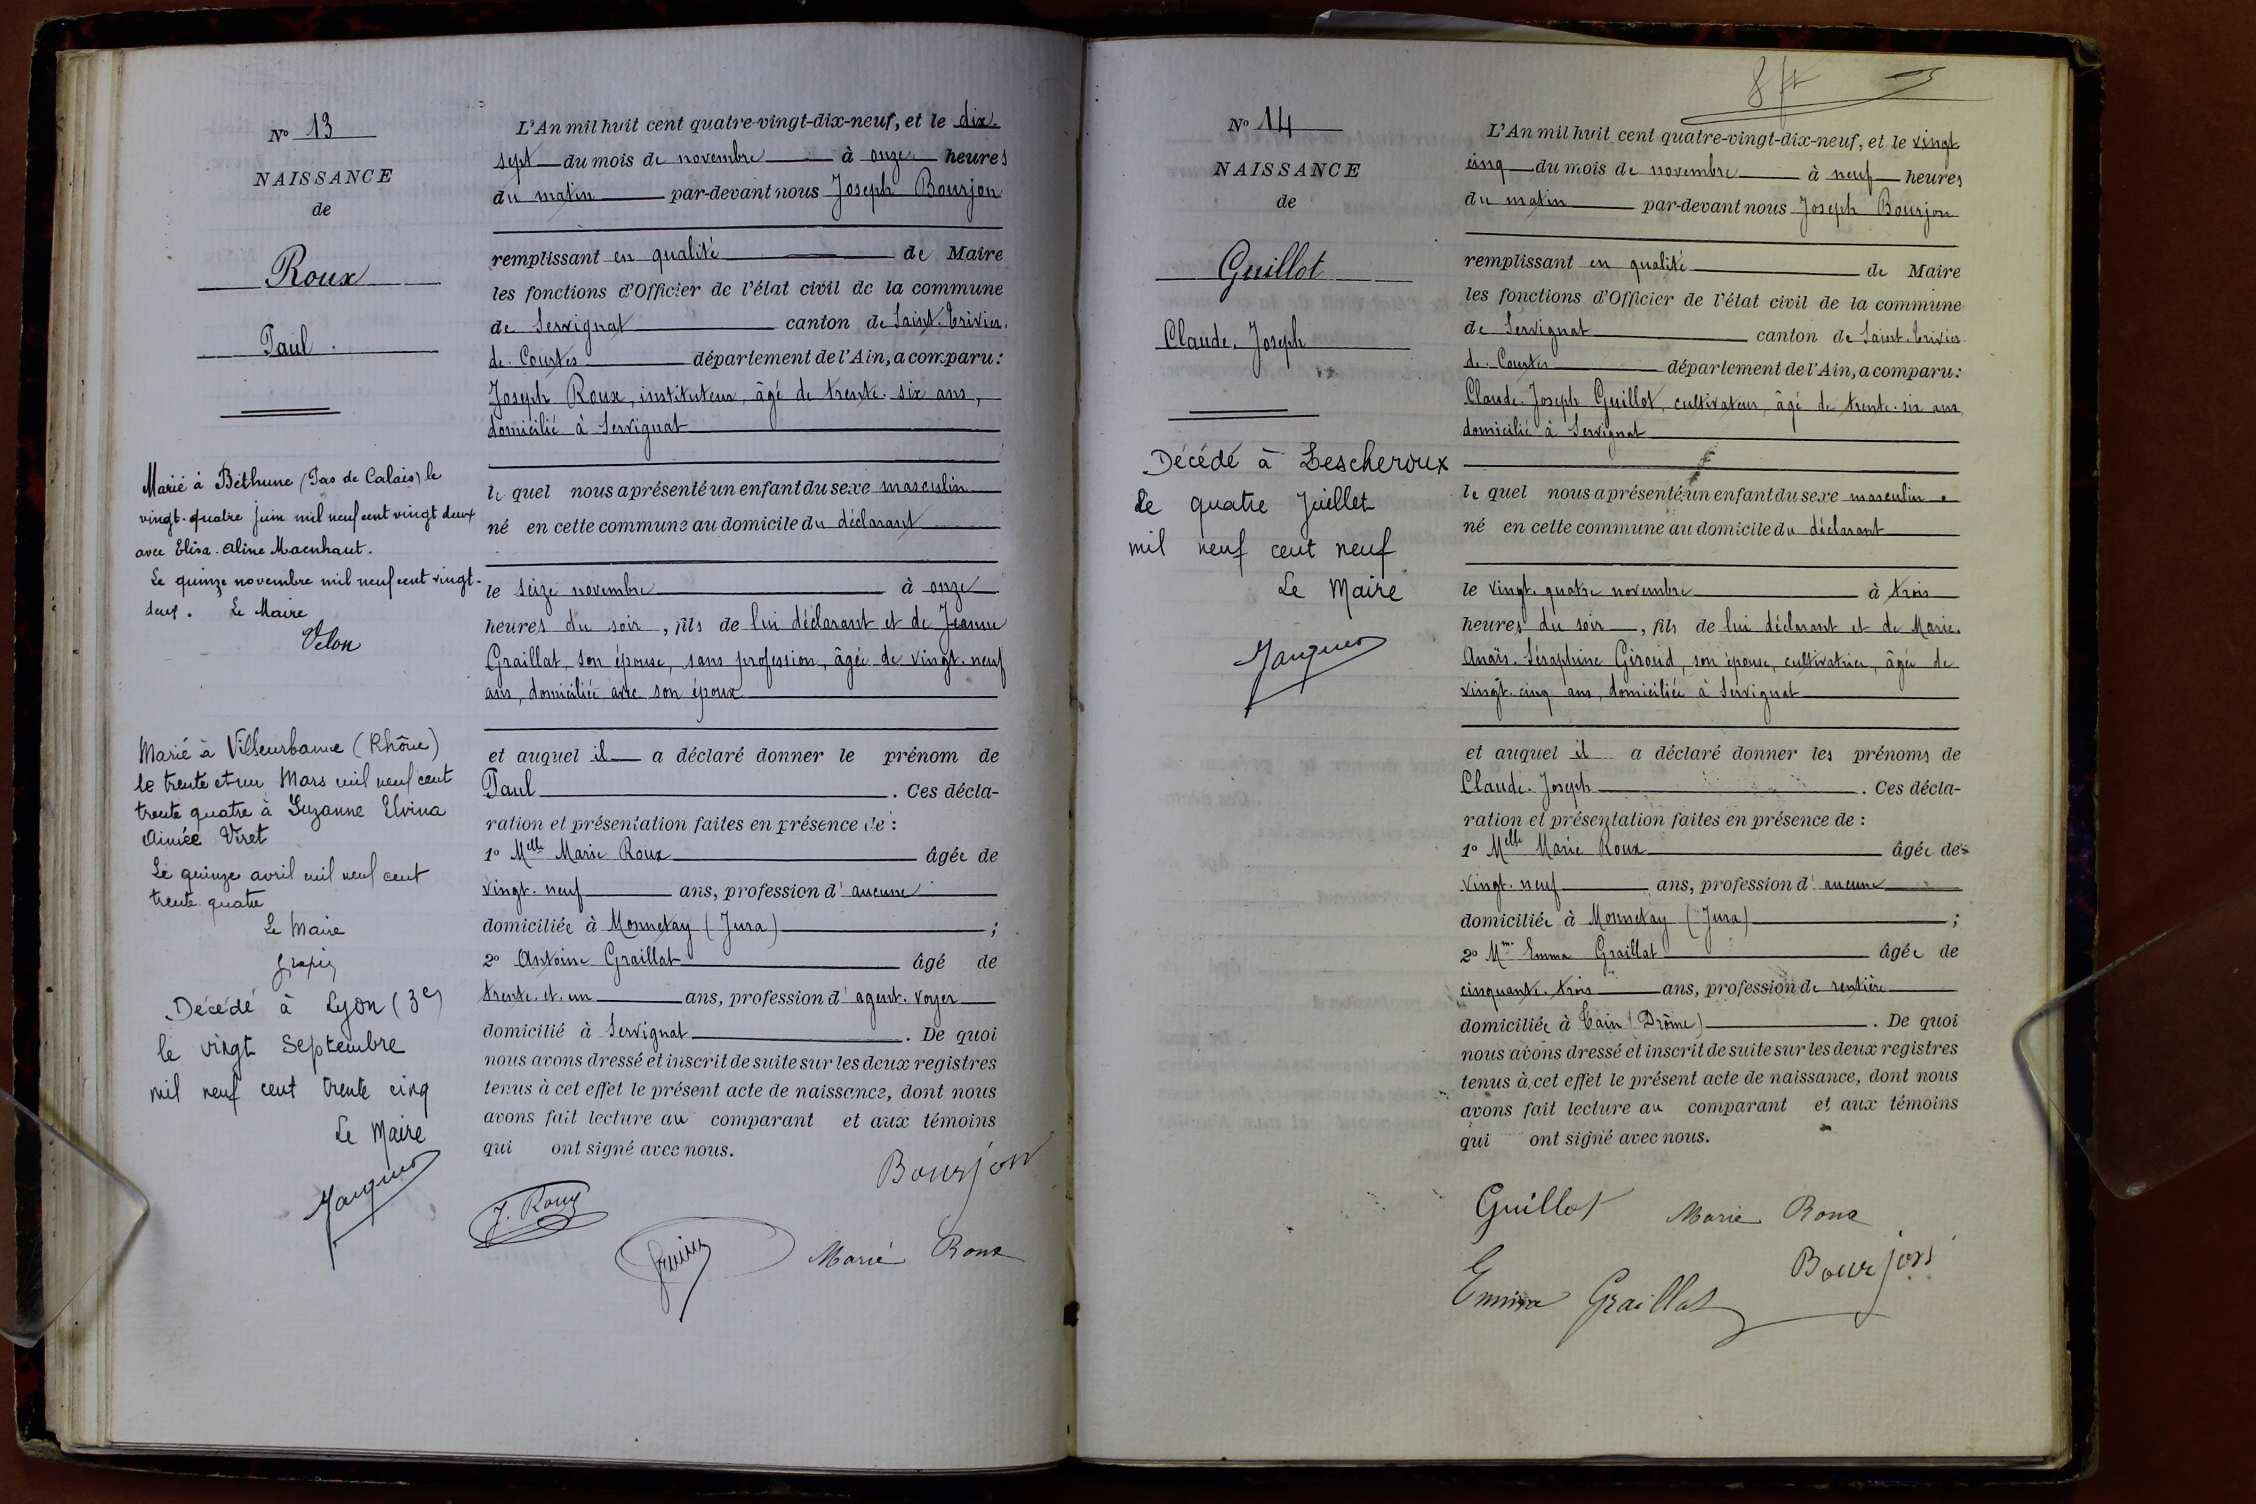 N° 13
NAISSANCE
de
Roux
Paul.
Marié à Béthune (Pas de Calais) le
vingt-quatre juin mil neuf cent vingt deux
avec Elisa-Aline Maenhaut.
Le quinze novembre mil neuf cent vingt-
deux. Le Maire
Velon
Marié à Villeurbanne (Rhône)
le trente et un Mars mil neuf cent
trente quatre à Suzanne Elvina
Aimée Viret
Le quinze avril mil neuf cent
trente quatre
Le Maire
Décédé à Lyon (3e)
le vingt Septembre
mil neuf cent trente cinq
Le Maire
L'An mil huit cent quatre-vingt-dix-neuf, et le dix-
sept du mois de novembre à onze heures
du matin par-devant nous Joseph Bourjon
remplissant en qualité de Maire
les fonctions d'Officier de l'état civil de la commune
de Servignat canton de Saint-Trivier-
de-Courtes département de l'Ain, a comparu:
Joseph Roux, instituteur, âgé de trente-six ans,
domicilié à Servignat
le quel nous a présenté un enfant du sexe masculin
né en cette commune au domicile du déclarant
le seize novembre à onze
heures du soir, fils de lui déclarant et de Jeanne
Graillat, son épouse, sans profession, âgée de vingt-neuf
ans, domiciliée avec son époux
et auquel il a déclaré donner le prénom de
Paul. Ces décla-
ration et présentation faites en présence de:
1° Melle Marie Roux âgée de
vingt-neuf ans, profession d'aucune
domiciliée à Monnetay (Jura);
2° Antoine Graillat âgé de
trente-et-un ans, profession d'agent-voyer
domicilié à Servignat. De quoi
nous avons dressé et inscrit de suite sur les deux registres
tenus à cet effet le présent acte de naissance, dont nous
avons fait lecture au comparant et aux témoins
qui ont signé avec nous.
Bourjon
J. Roux
Marie Roux
N° 14
NAISSANCE
de
Guillot
Claude-Joseph
Décédé à Lescheroux
le quatre Juillet
mil neuf cent neuf
Le Maire
L'An mil huit cent quatre-vingt-dix-neuf, et le vingt
cinq du mois de novembre à neuf heures
du matin par-devant nous Joseph Bourjon
remplissant en qualité de Maire
les fonctions d'Officier de l'état civil de la commune
de Servignat canton de Saint-Trivier-
de-Courtes département de l'Ain, a comparu:
Claude-Joseph Guillot, cultivateur, âgé de trente-six ans,
domicilié à Servignat
le quel nous a présenté un enfant du sexe masculin
né en cette commune au domicile du déclarant
le vingt-quatre novembre à trois
heures du soir, fils de lui déclarant et de Marie-
Anaïs-Séraphine Giroud, son épouse, cultivatrice, âgée de
vingt-cinq ans, domiciliée à Servignat
et auquel il a déclaré donner les prénoms de
Claude-Joseph. Ces décla-
ration et présentation faites en présence de:
1° Melle Marie Roux âgée de
vingt-neuf ans, profession d'aucune
domiciliée à Monnetay (Jura);
2° Mme Emma Graillat âgée de
cinquante-trois ans, profession de rentière
domiciliée à Tain (Drôme). De quoi
nous avons dressé et inscrit de suite sur les deux registres
tenus à cet effet le présent acte de naissance, dont nous
avons fait lecture au comparant et aux témoins
qui ont signé avec nous.
Guillot Marie Roux
Bourjon
Emma Graillat